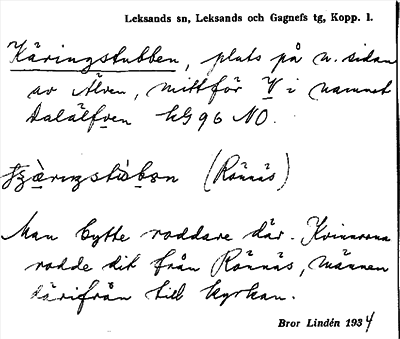 Leksands sn, Leksands och Gagnefs tg, Kopp. l.
Käringstubben, plats på n. sidan
av Älven, mittför V i namnet
Dalälfven hG 96 NO.
(Rönnäs)
Man bytte roddare där. Kvinnorna
rodde dit från Rönnäs, männen
därifrån till kyrkan.
Bror Lindén 1934